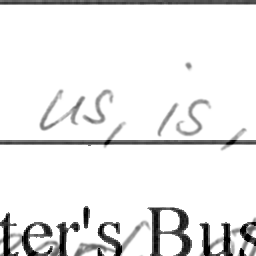 us, is,
ter's Bus